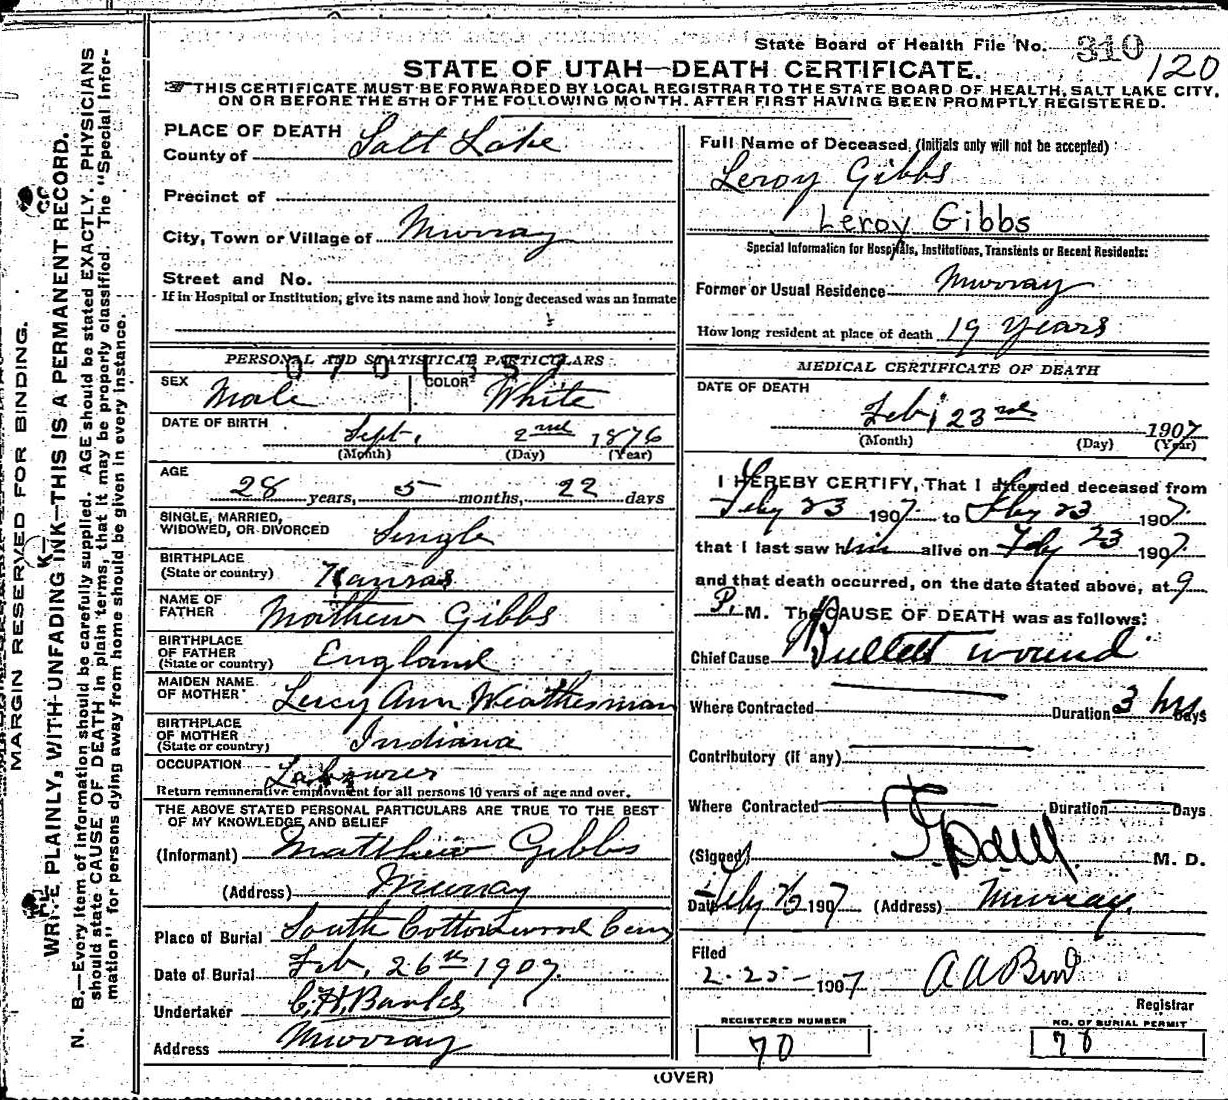 State Board of Health File No. 310
120
STATE OF UTAH—DEATH CERTIFICATE.
THIS CERTIFICATE MUST BE FORWARDED BY LOCAL REGISTRAR TO THE STATE BOARD OF HEALTH, SALT LAKE CITY,
ON OR BEFORE THE 5TH OF THE FOLLOWING MONTH. AFTER FIRST HAVING BEEN PROMPTLY REGISTERED.
MARGIN RESERVED FOR BINDING.
WRITE PLAINLY, WITH UNFADING INK—THIS IS A PERMANENT RECORD.
N. B.—Every item of information should be carefully supplied. AGE should be stated EXACTLY. PHYSICIANS
should state CAUSE OF DEATH in plain terms, that it may be properly classified. The "Special Infor-
mation" for persons dying away from home should be given in every instance.
PLACE OF DEATH
County of Salt Lake
Precinct of
City, Town or Village of Murray
Street and No.
If in Hospital or Institution, give its name and how long deceased was an Inmate
PERSONAL AND STATISTICAL PARTICULARS
0701357
SEX Male COLOR White
DATE OF BIRTH Sept. 2nd 1876
(Month) (Day) (Year)
AGE 28 years, 5 months, 22 days
SINGLE, MARRIED,
WIDOWED, OR DIVORCED Single
BIRTHPLACE
(State or country) Kansas
NAME OF
FATHER Matthew Gibbs
BIRTHPLACE
OF FATHER
(State or country) England
MAIDEN NAME
OF MOTHER Lucy Ann Weathesman
BIRTHPLACE
OF MOTHER
(State or country) Indiana
OCCUPATION Labourer
Return remunerative employment for all persons 10 years of age and over.
THE ABOVE STATED PERSONAL PARTICULARS ARE TRUE TO THE BEST
OF MY KNOWLEDGE AND BELIEF
(Informant) Matthew Gibbs
(Address) Murray
Place of Burial South Cottonwood Cem
Date of Burial Feb. 26th 1907.
Undertaker C. H. Banks
Address Murray
Full Name of Deceased, (Initials only will not be accepted)
Leroy Gibbs
Leroy Gibbs
Special Information for Hospitals, Institutions, Transients or Recent Residents:
Former or Usual Residence Murray
How long resident at place of death 19 years
MEDICAL CERTIFICATE OF DEATH
DATE OF DEATH
Feb, 23rd 1907
(Month) (Day) (Year)
I HEREBY CERTIFY, That I attended deceased from
Feby 23 1907. to Feby 23 1907.
that I last saw him alive on Feby 23 1907.
and that death occurred, on the date stated above, at 9
P. M. The CAUSE OF DEATH was as follows:
Chief Cause Bullett wound
Where Contracted Duration 3 hrs. Days
Contributory (if any)
Where Contracted Duration Days
(Signed) M. D.
Date Feby 1907 (Address) Murray.
Filed
2-25-1907 A A
Registrar
REGISTERED NUMBER
70
NO. OF BURIAL PERMIT
(OVER)